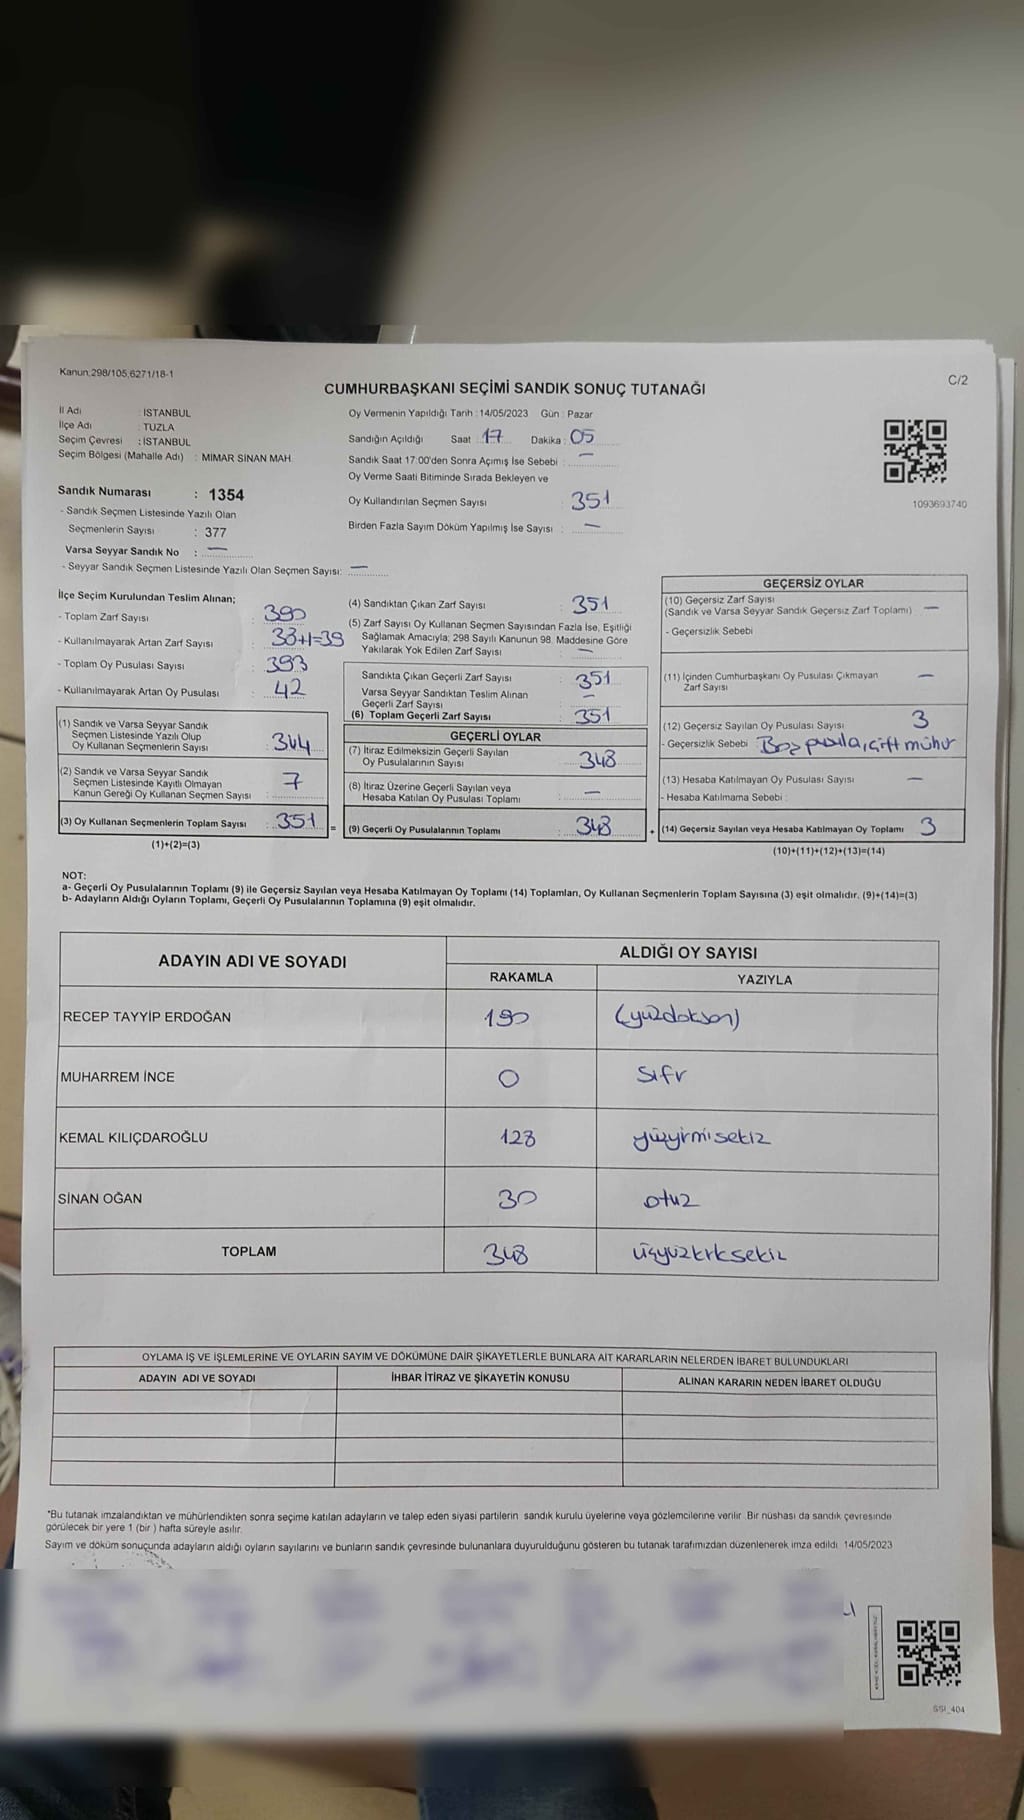 Kanun;298/105,6271/18-1
C/2
CUMHURBAŞKANI SEÇİMİ SANDIK SONUÇ TUTANAĞI
İl Adı : İSTANBUL
İlçe Adı : TUZLA
Seçim Çevresi : İSTANBUL
Seçim Bölgesi (Mahalle Adı) : MİMAR SİNAN MAH.
Sandık Numarası : 1354
- Sandık Seçmen Listesinde Yazılı Olan
Seçmenlerin Sayısı : 377
Varsa Seyyar Sandık No : —
- Seyyar Sandık Seçmen Listesinde Yazılı Olan Seçmen Sayısı: —
Oy Vermenin Yapıldığı Tarih : 14/05/2023 Gün : Pazar
Sandığın Açıldığı Saat 17 Dakika : 05
Sandık Saat 17:00'den Sonra Açımış İse Sebebi : —
Oy Verme Saati Bitiminde Sırada Bekleyen ve
Oy Kullandırılan Seçmen Sayısı : 351
Birden Fazla Sayım Döküm Yapılmış İse Sayısı : —
1093693740
İlçe Seçim Kurulundan Teslim Alınan;
- Toplam Zarf Sayısı : 390
- Kullanılmayarak Artan Zarf Sayısı : 38+1=39
- Toplam Oy Pusulası Sayısı : 393
- Kullanılmayarak Artan Oy Pusulası : 42
(1) Sandık ve Varsa Seyyar Sandık
Seçmen Listesinde Yazılı Olup
Oy Kullanan Seçmenlerin Sayısı : 344
(2) Sandık ve Varsa Seyyar Sandık
Seçmen Listesinde Kayıtlı Olmayan
Kanun Gereği Oy Kullanan Seçmen Sayısı : 7
(3) Oy Kullanan Seçmenlerin Toplam Sayısı : 351
(1)+(2)=(3)
(4) Sandıktan Çıkan Zarf Sayısı : 351
(5) Zarf Sayısı Oy Kullanan Seçmen Sayısından Fazla İse, Eşitliği
Sağlamak Amacıyla; 298 Sayılı Kanunun 98. Maddesine Göre
Yakılarak Yok Edilen Zarf Sayısı : —
Sandıkta Çıkan Geçerli Zarf Sayısı : 351
Varsa Seyyar Sandıktan Teslim Alınan
Geçerli Zarf Sayısı : —
(6) Toplam Geçerli Zarf Sayısı : 351
GEÇERLİ OYLAR
(7) İtiraz Edilmeksizin Geçerli Sayılan
Oy Pusulalarının Sayısı : 348
(8) İtiraz Üzerine Geçerli Sayılan veya
Hesaba Katılan Oy Pusulası Toplamı : —
= (9) Geçerli Oy Pusulalarının Toplamı : 348
GEÇERSİZ OYLAR
(10) Geçersiz Zarf Sayısı
(Sandık ve Varsa Seyyar Sandık Geçersiz Zarf Toplamı) —
- Geçersizlik Sebebi
(11) İçinden Cumhurbaşkanı Oy Pusulası Çıkmayan
Zarf Sayısı —
(12) Geçersiz Sayılan Oy Pusulası Sayısı 3
- Geçersizlik Sebebi Boş pusula, çift mühür
(13) Hesaba Katılmayan Oy Pusulası Sayısı —
- Hesaba Katılmama Sebebi :
+ (14) Geçersiz Sayılan veya Hesaba Katılmayan Oy Toplamı 3
(10)+(11)+(12)+(13)=(14)
NOT:
a- Geçerli Oy Pusulalarının Toplamı (9) ile Geçersiz Sayılan veya Hesaba Katılmayan Oy Toplamı (14) Toplamları, Oy Kullanan Seçmenlerin Toplam Sayısına (3) eşit olmalıdır. (9)+(14)=(3)
b- Adayların Aldığı Oyların Toplamı, Geçerli Oy Pusulalarının Toplamına (9) eşit olmalıdır.
ADAYIN ADI VE SOYADI
ALDIĞI OY SAYISI
RAKAMLA YAZIYLA
RECEP TAYYİP ERDOĞAN 190 (yüzdoksan)
MUHARREM İNCE 0 Sıfır
KEMAL KILIÇDAROĞLU 128 yüzyirmisekiz
SİNAN OĞAN 30 otuz
TOPLAM 348 üçyüzkırksekiz
OYLAMA İŞ VE İŞLEMLERİNE VE OYLARIN SAYIM VE DÖKÜMÜNE DAİR ŞİKAYETLERLE BUNLARA AİT KARARLARIN NELERDEN İBARET BULUNDUKLARI
ADAYIN ADI VE SOYADI İHBAR İTİRAZ VE ŞİKAYETİN KONUSU ALINAN KARARIN NEDEN İBARET OLDUĞU
*Bu tutanak imzalandıktan ve mühürlendikten sonra seçime katılan adayların ve talep eden siyasi partilerin sandık kurulu üyelerine veya gözlemcilerine verilir. Bir nüshası da sandık çevresinde
görülecek bir yere 1 (bir) hafta süreyle asılır.
Sayım ve döküm sonucunda adayların aldığı oyların sayılarını ve bunların sandık çevresinde bulunanlara duyurulduğunu gösteren bu tutanak tarafımızdan düzenlenerek imza edildi 14/05/2023
SSI_404